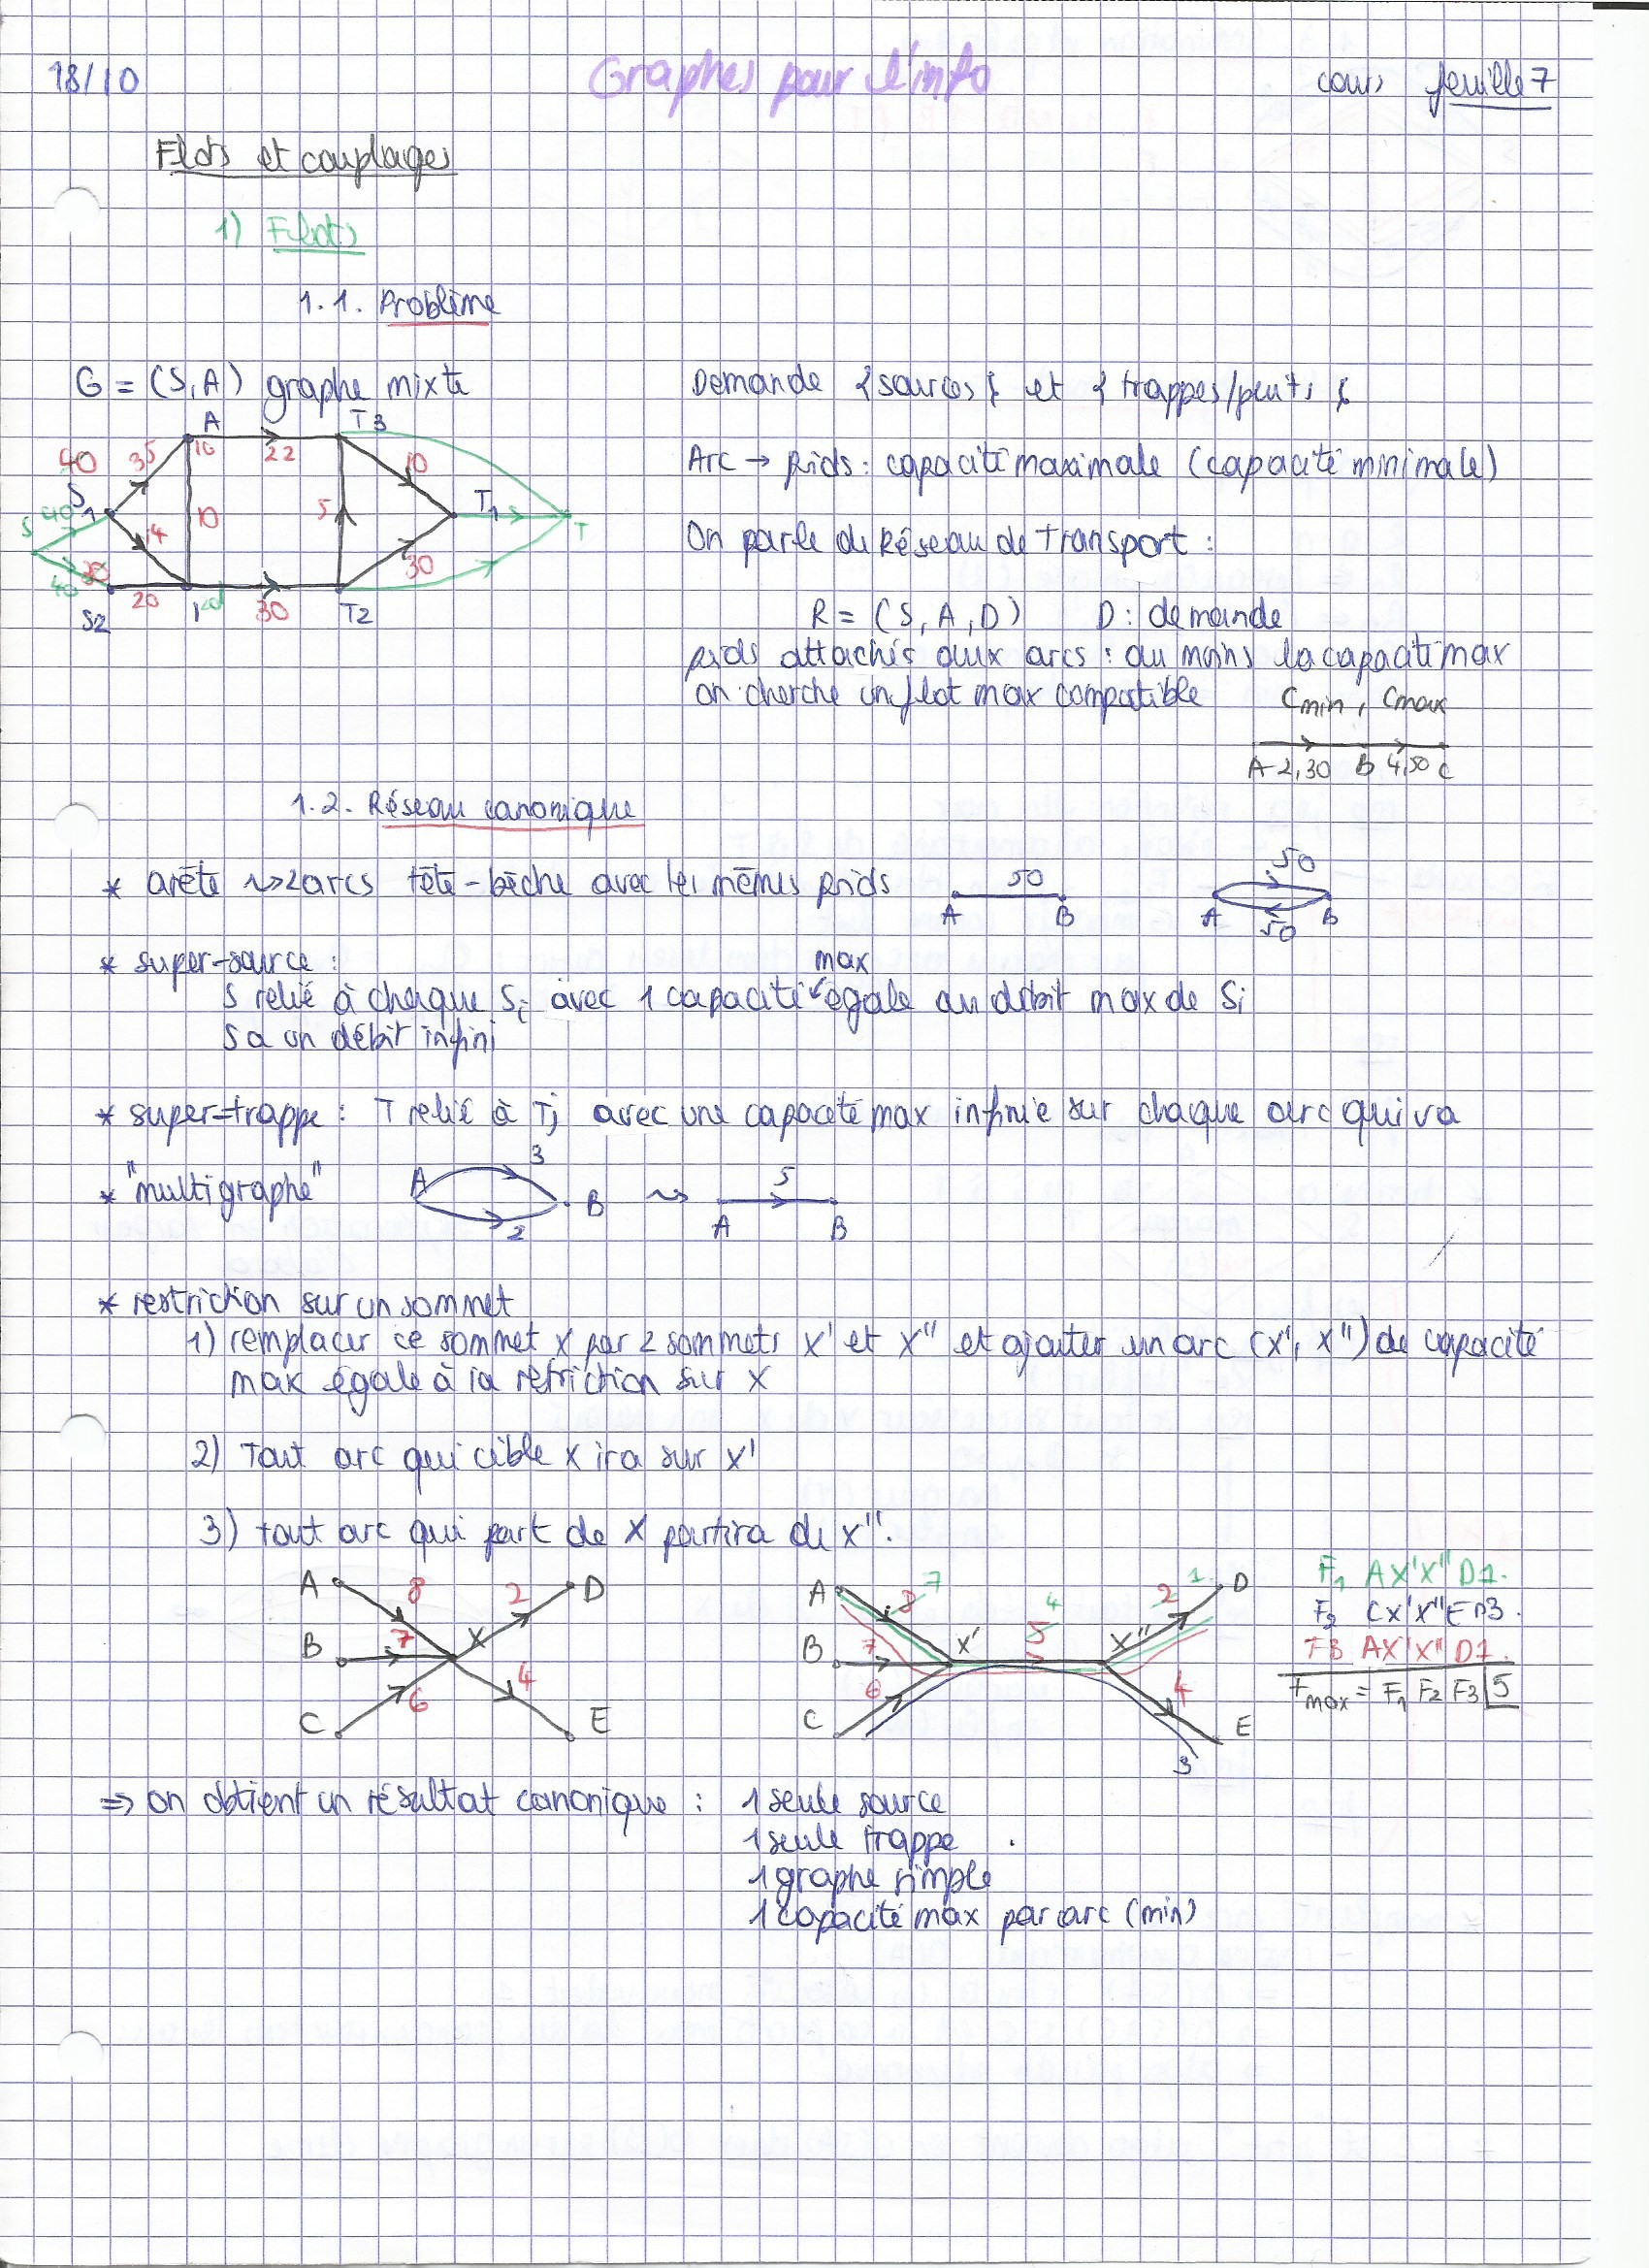 18/10
Graphes pour l'info
cours feuille 7
Flots et couplages
1) Flots
1.1. Problème
G = (S, A) graphe mixte
Demande {sources} et {trappes/puits}
Arc → poids : capacité maximale (capacité minimale)
On parle de Réseau de Transport :
R = (S, A, D) D : demande
poids attachés aux arcs : au moins la capacité max
on cherche un flot max compatible
Cmin, Cmax
A 2,30 B 4,50 C
A T3
40 35 16 22 10
S1 40 T1
S 14 10 5 T
40 30
S2 20 30 T2
1.2. Réseau canonique
* arête ⇝ 2 arcs tête-bèche avec les mêmes poids
50
A B
50
A B
50
* super-source :
max
S relié à chaque Si avec 1 capacité égale au débit max de Si
S a un débit infini
* super-trappe : T relié à Tj avec une capacité max infinie sur chaque arc qui va
* "multigraphe" A 3 2 B ⇝ A 5 B
* restriction sur un sommet
1) remplacer ce sommet X par 2 sommets X' et X'' et ajouter un arc (X', X'') de capacité
max égale à la retriction sur X
2) Tout arc qui cible X ira sur X'
3) tout arc qui part de X partira de X''.
A 8 2 D
B 7 X
C 6 4 E
A 8 7 4 2 1 D
B 7 X' 5 X''
C 6 4 E
3
F1 AX'X''D1.
F2 CX'X''E 3.
F3 AX'X''D1.
Fmax = F1 F2 F3 5
⇒ on obtient un résultat canonique : 1 seule source
1 seule trappe
1 graphe simple
1 capacité max par arc (min)